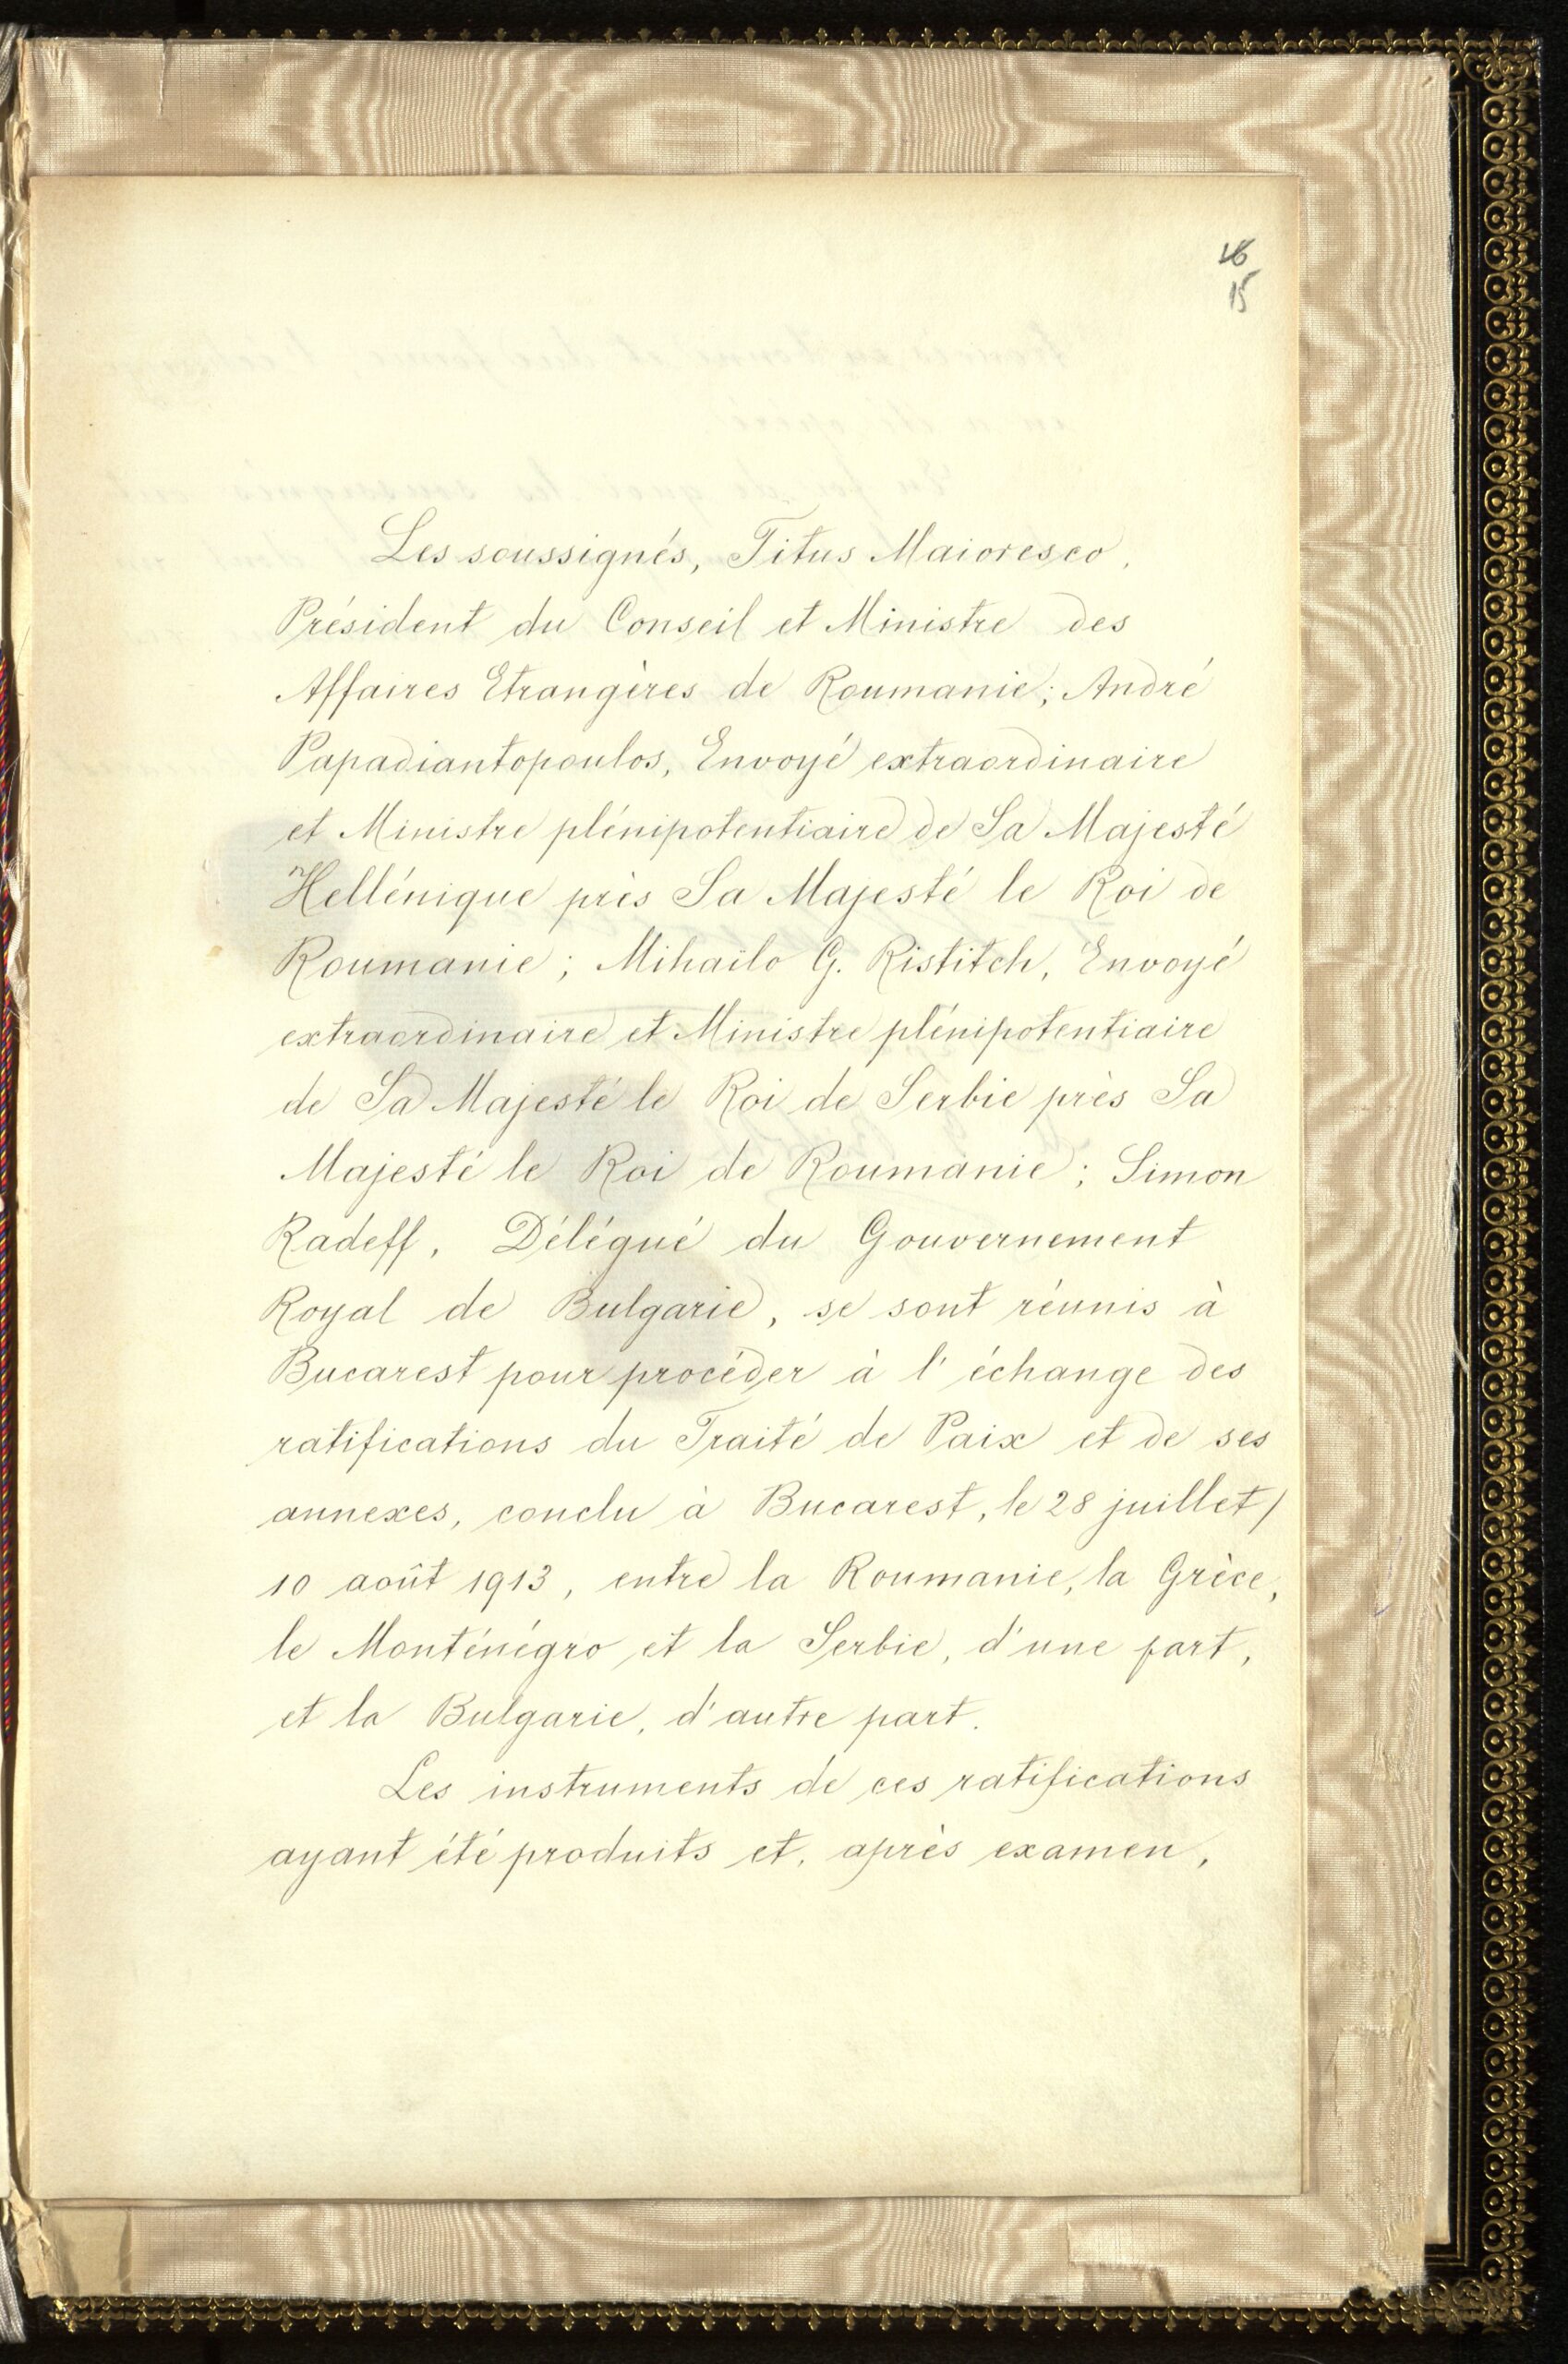 15
Les soussignés, Titus Maioresco,
Président du Conseil et Ministre des
Affaires Etrangères de Roumanie; André
Papadiantopoulos, Envoyé extraordinaire
et Ministre plénipotentiaire de Sa Majesté
Hellénique près Sa Majesté le Roi de
Roumanie; Mihaïlo G. Ristitch, Envoyé
extraordinaire et Ministre plénipotentiaire
de Sa Majesté le Roi de Serbie près Sa
Majesté le Roi de Roumanie; Simon
Radeff, Délégué du Gouvernement
Royal de Bulgarie, se sont réunis à
Bucarest pour procéder à l'échange des
ratifications du Traité de Paix et de ses
annexes, conclu à Bucarest, le 28 juillet/
10 août 1913, entre la Roumanie, la Grèce,
le Monténégro et la Serbie, d'une part,
et la Bulgarie, d'autre part.
Les instruments de ces ratifications
ayant été produits et, après examen,